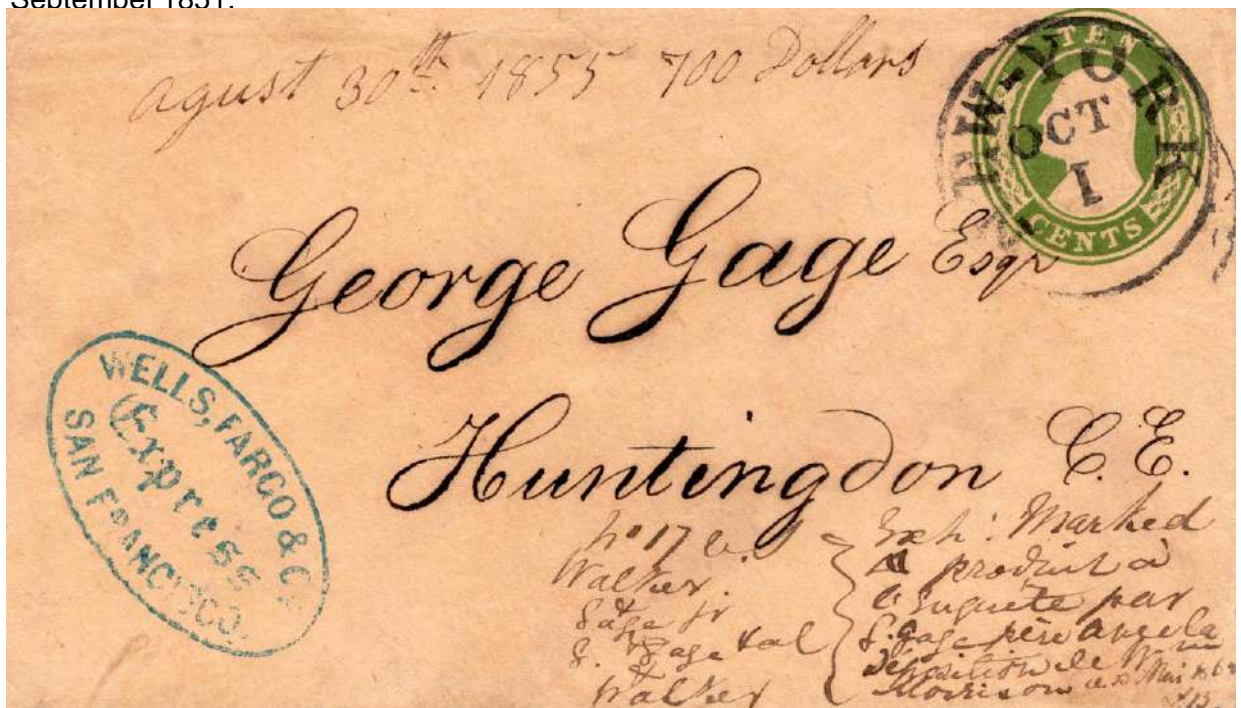 September 1851.
agust 30th 1855 700 Dollars
TEN
CENTS
NEW-YORK
OCT
1
George Gage Esqr
Huntingdon C.E.
WELLS, FARGO & Co
Express
SAN FRANCISCO.
Walker
Gage jr
S. Gage & al
Walker
Exh: Marked
A produit à
l'Enquete par
S. gage père avec la
Deposition de Wm
Morrison